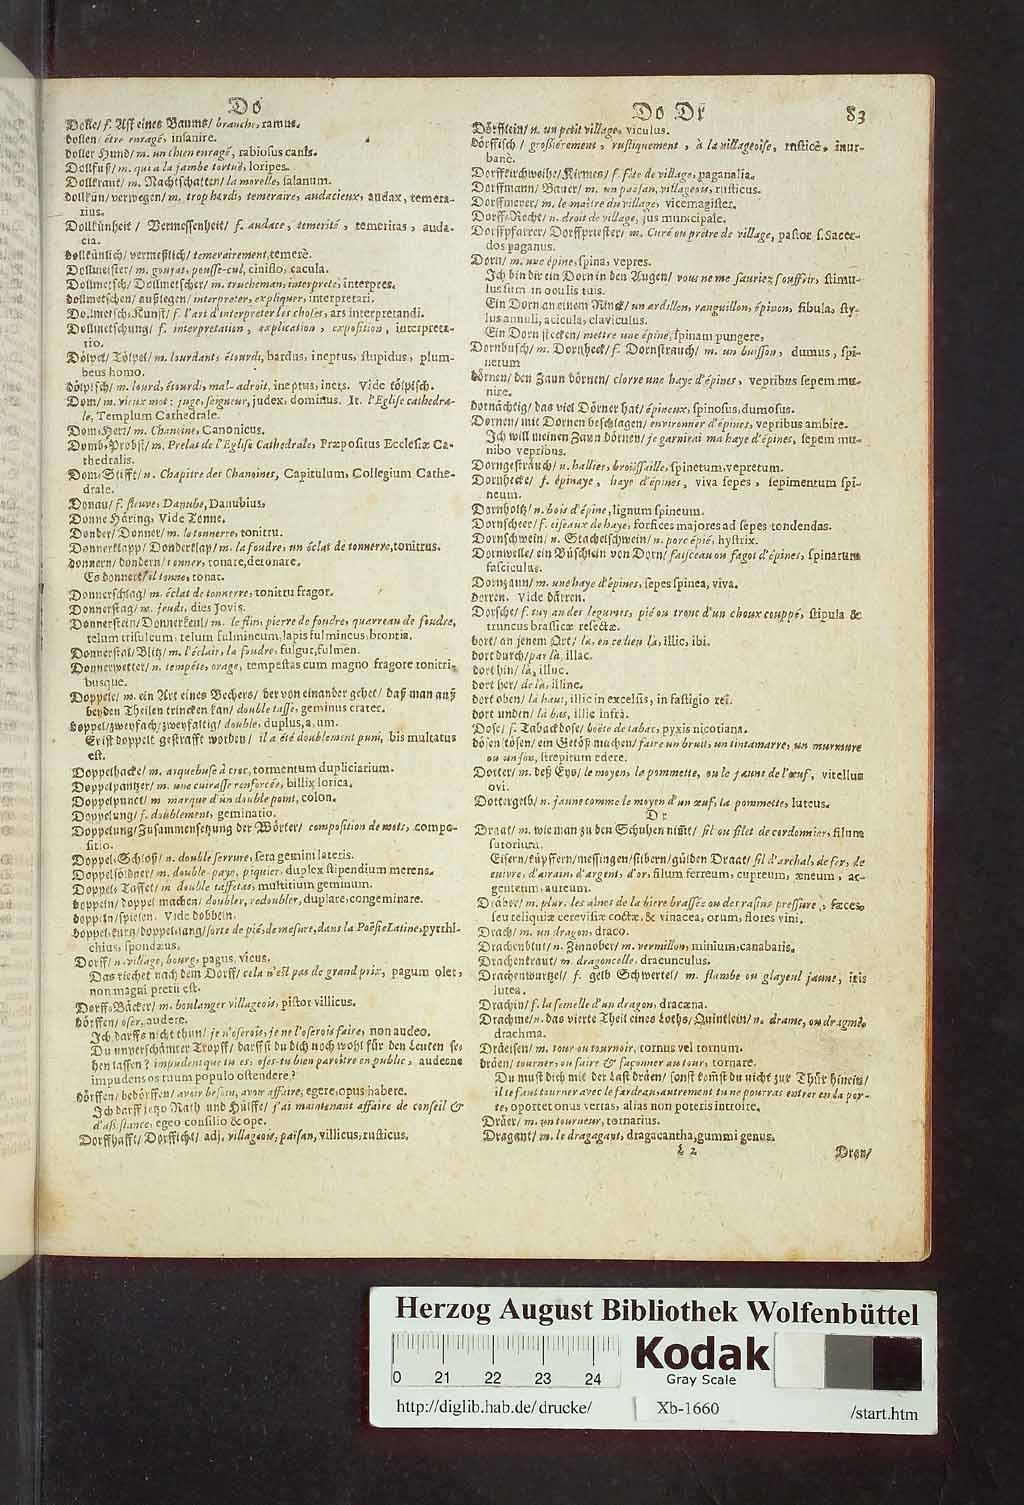 Do
Dolle/ f. Ast eines Baums/ branche, ramus.
dollen/ étre enragé, insanire.
doller Hund/ m. un chien enragé, rabiosus canis.
Dollfuß/ m. qui a la jambe tortuë, loripes.
Dollkraut/ m. Nachtschatten/ la morelle, salanum.
dollkün/ verwegen/ m. trop hardi, temeraire, audacieux, audax, temera-
rius.
Dollkünheit/ Vermessenheit/ f. audace, temerité, temeritas, auda-
cia.
dollkünlich/ vermeßlich/ temerairement, temerè.
Dollmeister/ m. goujat, pousse-cul, ciniflo, cacula.
Dollmetsch/ Dollmetscher/ m. trucheman, interprete, interpres.
dollmetschen/ außlegen/ interpreter, expliquer, interpretari.
Dollmetsch-Kunst/ f. l'art d'interpreter les choses, ars interpretandi.
Dollmetschung/ f. interpretation, explication, exposition, interpreta-
tio.
Dölpel/ Tölpel/ m. lourdant, étourdi, bardus, ineptus, stupidus, plum-
beus homo.
dölpisch/ m. lourd, étourdi, mal-adroit, ineptus, iners. Vide tölpisch.
Dom/ m. vieux mot: juge, seigneur, judex, dominus. It. l'Eglise cathedra-
le, Templum Cathedrale.
Dom-Herr/ m. Chanoine, Canonicus.
Domb-Probst/ m. Prelat de l'Eglise Cathedrale, Præpositus Ecclesiæ Ca-
thedralis.
Dom-Stifft/ n. Chapitre des Chanoines, Capitulum, Collegium Cathe-
drale.
Donau/ f. fleuve, Danube, Danubius.
Donne Häring, Vide Tonne.
Donder/ Donner/ m. le tonnerre, tonitru.
Donnerklapp/ Donderklap/ m. la foudre, un éclat de tonnerre, tonitrus.
donnern/ dondern/ tonner, tonare, detonare.
Es donnert/ il tonne, tonat.
Donnerschlag/ m. éclat de tonnerre, tonitru fragor.
Donnerstag/ m. jeudi, dies Jovis.
Donnerstein/ Donnerkeul/ m. le flin, pierre de foudre, quarreau de foudre,
telum trisulcum, telum fulmineum, lapis fulmineus, brontia.
Donnerstral/ Blitz/ m. l'éclair, la foudre, fulgur, fulmen.
Donnerwetter/ n. tempête, orage, tempestas cum magno fragore tonitri-
busque.
Doppele/ m. ein Art eines Bechers/ der von einander gehet/ daß man auß
beyden Theilen trincken kan/ double tasse, geminus crater.
doppel/ zweyfach/ zweyfaltig/ double, duplus, a, um.
Er ist doppelt gestrafft worden/ il a été doublement puni, bis multatus
est.
Doppelhacke/ m. arquebuse à croc, tormentum dupliciarium.
Doppelpantzer/ m. une cuirasse renforcée, billix lorica.
Doppelpunct/ m. marque d'un double point, colon.
Doppelung/ f. doublement, geminatio.
Doppelung/ Zusammensetzung der Wörter/ composition de mots, compo-
sitio.
Doppel-Schloß/ n. double serrure, sera gemini lateris.
Doppelsöldner/ m. double-paye, piquier, duplex stipendium merens.
Doppel-Taffet/ m. double taffetas, multitium geminum.
doppeln/ doppel machen/ doubler, redoubler, duplare, congeminare.
doppeln/ spielen. Vide dobbeln.
doppel-kurtz/ doppel-lang/ sorte de pié, de mesure, dans la Poësie Latine, pyrrhi-
chius, spondæus.
Dorff/ n. village, bourg, pagus, vicus.
Das riechet nach dem Dorff/ cela n'est pas de grand prix, pagum olet,
non magni pretii est.
Dorff-Bäcker/ m. boulanger villageois, pistor villicus.
dörffen/ oser, audere.
Ich darffs nicht thun/ je n'oserois, je ne l'oserois faire, non audeo.
Du unverschämter Tropff/ darffst du dich noch wohl für den Leuten se-
hen lassen? impudent que tu es, oses-tu bien paroitre en public, audesne
impudens os tuum populo ostendere?
dörffen/ bedörffen/ avoir besoin, avoir affaire, egere, opus habere.
Ich darff jetzo Rath und Hülffe/ j'ai maintenant affaire de conseil &
d'assistance, egeo consilio & ope.
Dorffhafft/ Dorfficht/ adj. villageois, païsan, villicus, rusticus.
Do Dr 83
Dörfflein/ n. un petit village, viculus.
dörffisch/ grossierement, rustiquement, à la villageoise, rusticè, inur-
banè.
Dorffkirchweihe/ Kirmes/ f. fête de village, paganalia.
Dorffmann/ Bauer/ m. un païsan, villageois, rusticus.
Dorffmeyer/ m. le maître du village, vicemagister.
Dorff-Recht/ n. droit de village, jus municipale.
Dorffpfarrer/ Dorffpriester/ m. Curé ou prêtre de village, pastor s. Sacer-
dos paganus.
Dorn/ m. une épine, spina, vepres.
Ich bin dir ein Dorn in den Augen/ vous ne me sauriez souffrir, stimu-
lus sum in oculis tuis.
Ein Dorn an einem Ring/ un ardillon, ranguillon, épinon, fibula, sty-
lus annuli, acicula, claviculus.
Ein Dorn stecken/ mettre une épine, spinam pungere,
Dornbusch/ m. Dornheck/ f. Dornstrauch/ m. un buisson, dumus, spi-
netum
dörnen/ den Zaun dörnen/ clorre une haye d'épines, vepribus sepem mu-
nire.
dornächtig/ das viel Dörner hat/ épineux, spinosus, dumosus.
Dornen/ mit Dornen beschlagen/ environner d'épines, vepribus ambire.
Ich will meinen Zaun dörnen/ je garnirai ma haye d'épines, sepem mu-
nibo vepribus.
Dorngesträuch/ n. hallier, broüssaille, spinetum, vepretum.
Dornhecke/ f. épinaye, haye d'épines, viva sepes, sepimentum spi-
neum.
Dornholtz/ n. bois d'épine, lignum spineum.
Dornscheer/ f. ciseaux de haye, forfices majores ad sepes tondendas.
Dornschwein/ n. Stachelschwein/ n. porc épié, hystrix.
Dornwelle/ ein Büschlein von Dorn/ faisceau ou fagot d'épines, spinarum
fasciculus.
Dornzaun/ m. une haye d'épines, sepes spinea, viva.
dorren. Vide dürren.
Dorsche/ f. tuyau des legumes, pié ou tronc d'un choux couppé, stipula &
truncus brassicæ resectæ.
dort/ an jenem Ort/ là, en ce lieu là, illic, ibi.
dort durch/ par là, illac.
dort hin/ là, illuc.
dort her/ de là, illinc.
dort oben/ là haut, illic in excelsis, in fastigio rei.
dort unden/ là bas, illic infrà.
Dose/ f. Tabackdose/ boëte de tabac, pyxis nicotiana.
dösen/ tösen/ ein Getöß machen/ faire un bruit, un tintamarre, un murmure
ou un son, strepitum edere.
Dotter/ m. deß Eys/ le moyen, la pommette, ou le jaune de l'œuf, vitellus
ovi.
Dottergelb/ n. jaune comme le moyen d'un œuf, la pommette, luteus.
Dr
Draat/ m. wie man zu den Schuhen nimt/ fil ou filet de cordonnier, filum
sutorium.
Eisern/ küpffern/ messingen/ silbern/ gülden Draat/ fil d'archal, de fer, de
cuivre, d'airain, d'argent, d'or, filum ferreum, cupreum, æneum, ar-
genteum, aureum.
Dräber/ m. plur. les aînes de la biere brassée ou des raisins pressure, fæces,
seu reliquiæ cerevisiæ coctæ, & vinacea, orum, flores vini.
Drach/ m. un dragon, draco.
Drachenblut/ n. Zinnober/ m. vermillon, minium, canabaris.
Drachenkraut/ m. dragoncelle, dracunculus.
Drachenwurtzel/ f. gelb Schwertel/ m. flambe ou glayeul jaune, iris
lutea.
Drachin/ f. la femelle d'un dragon, dracæna.
Drachme/ n. das vierte Theil eines Loths/ Quintlein/ n. drame, ou dragme,
drachma.
Dräeisen/ m. tour ou tournoir, tornus vel tornum.
dräen/ tourner, ou faire & façonner au tour, tornare.
Du must dich mit der Last dräen/ sonst komst du nicht zur Thür hinein/
il te faut tourner avec le fardeau, autrement tu ne pourras entrer en la por-
te, oportet onus vertas, alias non poteris introire.
Dräer/ m. un tourneur, tornarius.
Dragant/ m. le dragagant, dragacantha, gummi genus.
L 2 Dran/
Herzog August Bibliothek Wolfenbüttel
Kodak
Gray Scale
0 21 22 23 24
http://diglib.hab.de/drucke/ Xb-1660 /start.htm